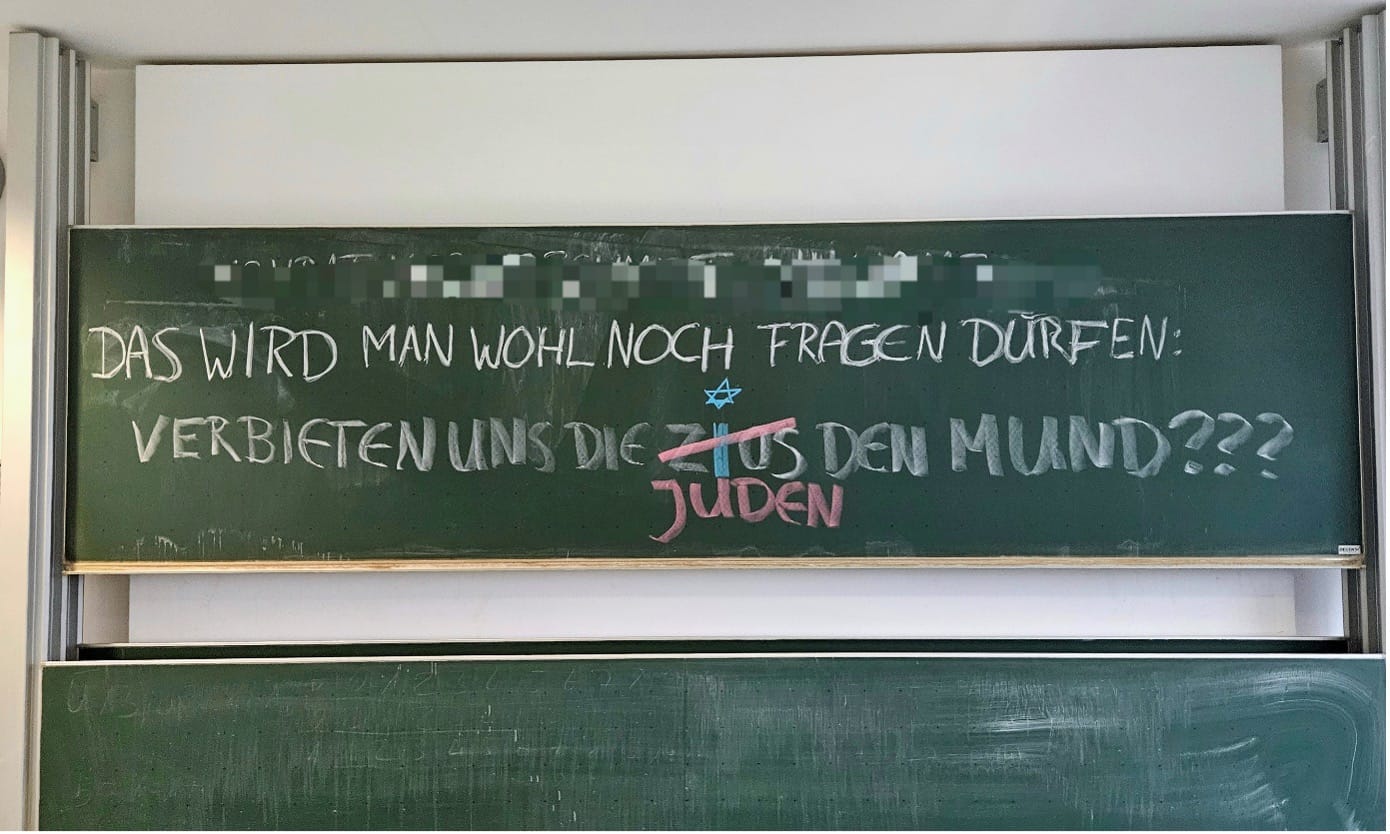 DAS WIRD MAN WOHL NOCH FRAGEN DÜRFEN:
VERBIETEN UNS DIE ZIUS DEN MUND???
JUDEN